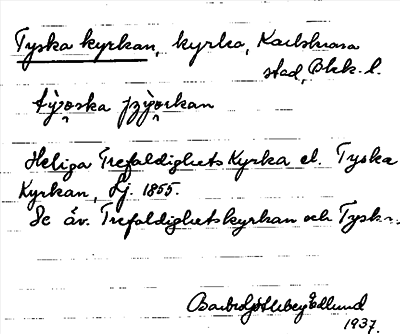 Tyska kyrkan, kyrka, Karlskrona
stad, Blek. l.
týs̬ska
Heliga Trefaldighets Kyrka el. Tyska
Kyrkan, Lj. 1855.
Se äv. Trefaldighetskyrkan och Tysk..
Edlund
1937.